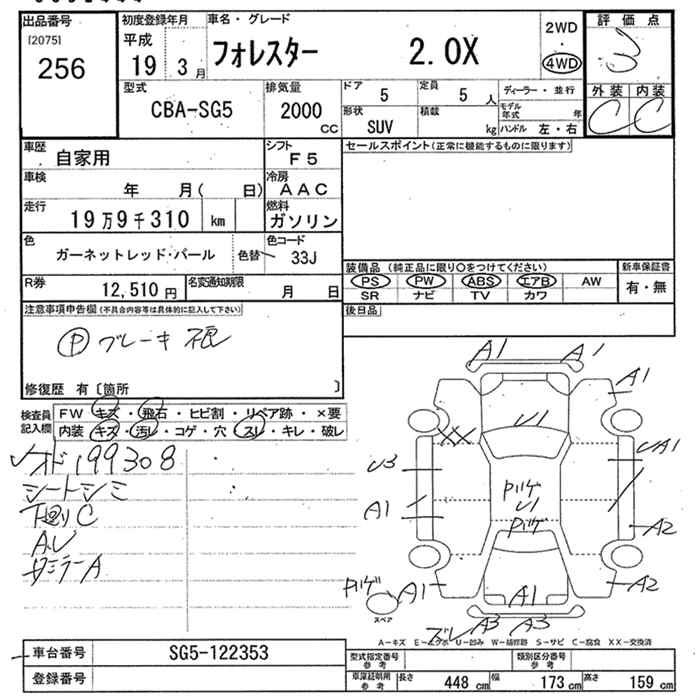 出品番号
[2075]
256
初度登録年月
平成
19年3月
車名・グレード
フォレスター 2.0X
2WD
・
4WD
評価点
3
外装 内装
C C
型式
CBA-SG5
排気量
2000
cc
ドア
5
定員
5人
形状
SUV
積載
kg
ディーラー・並行
モデル年式 年
ハンドル 左・右
車歴
自家用
シフト
F5
車検
年 月( 日)
冷房
AAC
走行
19万9千310 km
燃料
ガソリン
色
ガーネットレッド・パール
色替
色コード
33J
R券
12,510円
名変通知期限
月 日
セールスポイント(正常に機能するものに限ります)
装備品 (純正品に限り○をつけてください)
PS PW ABS エアB AW
SR ナビ TV カワ
新車保証書
有・無
後日品
注意事項申告欄(不具合内容等は具体的に記入して下さい)
Ⓟブレーキ
修復歴 有〔箇所 〕
検査員記入欄
FW キズ・飛石・ヒビ割・リペア跡・×要
内装 キズ・汚レ・コゲ・穴・スレ・キレ・破レ
オド199308
シートシミ
下廻りC
AU
ミラーA
A1 A1
A1
U1
XX
U3
UA1
Pハゲ
U1
Pハゲ
A1
A2
Pハゲ
A1
A1
A2
スペア
ズレ A3 A3
A-キズ E-エクボ U-凹み W-補修跡 S-サビ C-腐食 XX-交換済
車台番号
SG5-122353
登録番号
型式指定番号
参考
類別区分番号
参考
車庫証明用
参考
長さ 448cm
幅 173cm
高さ 159cm